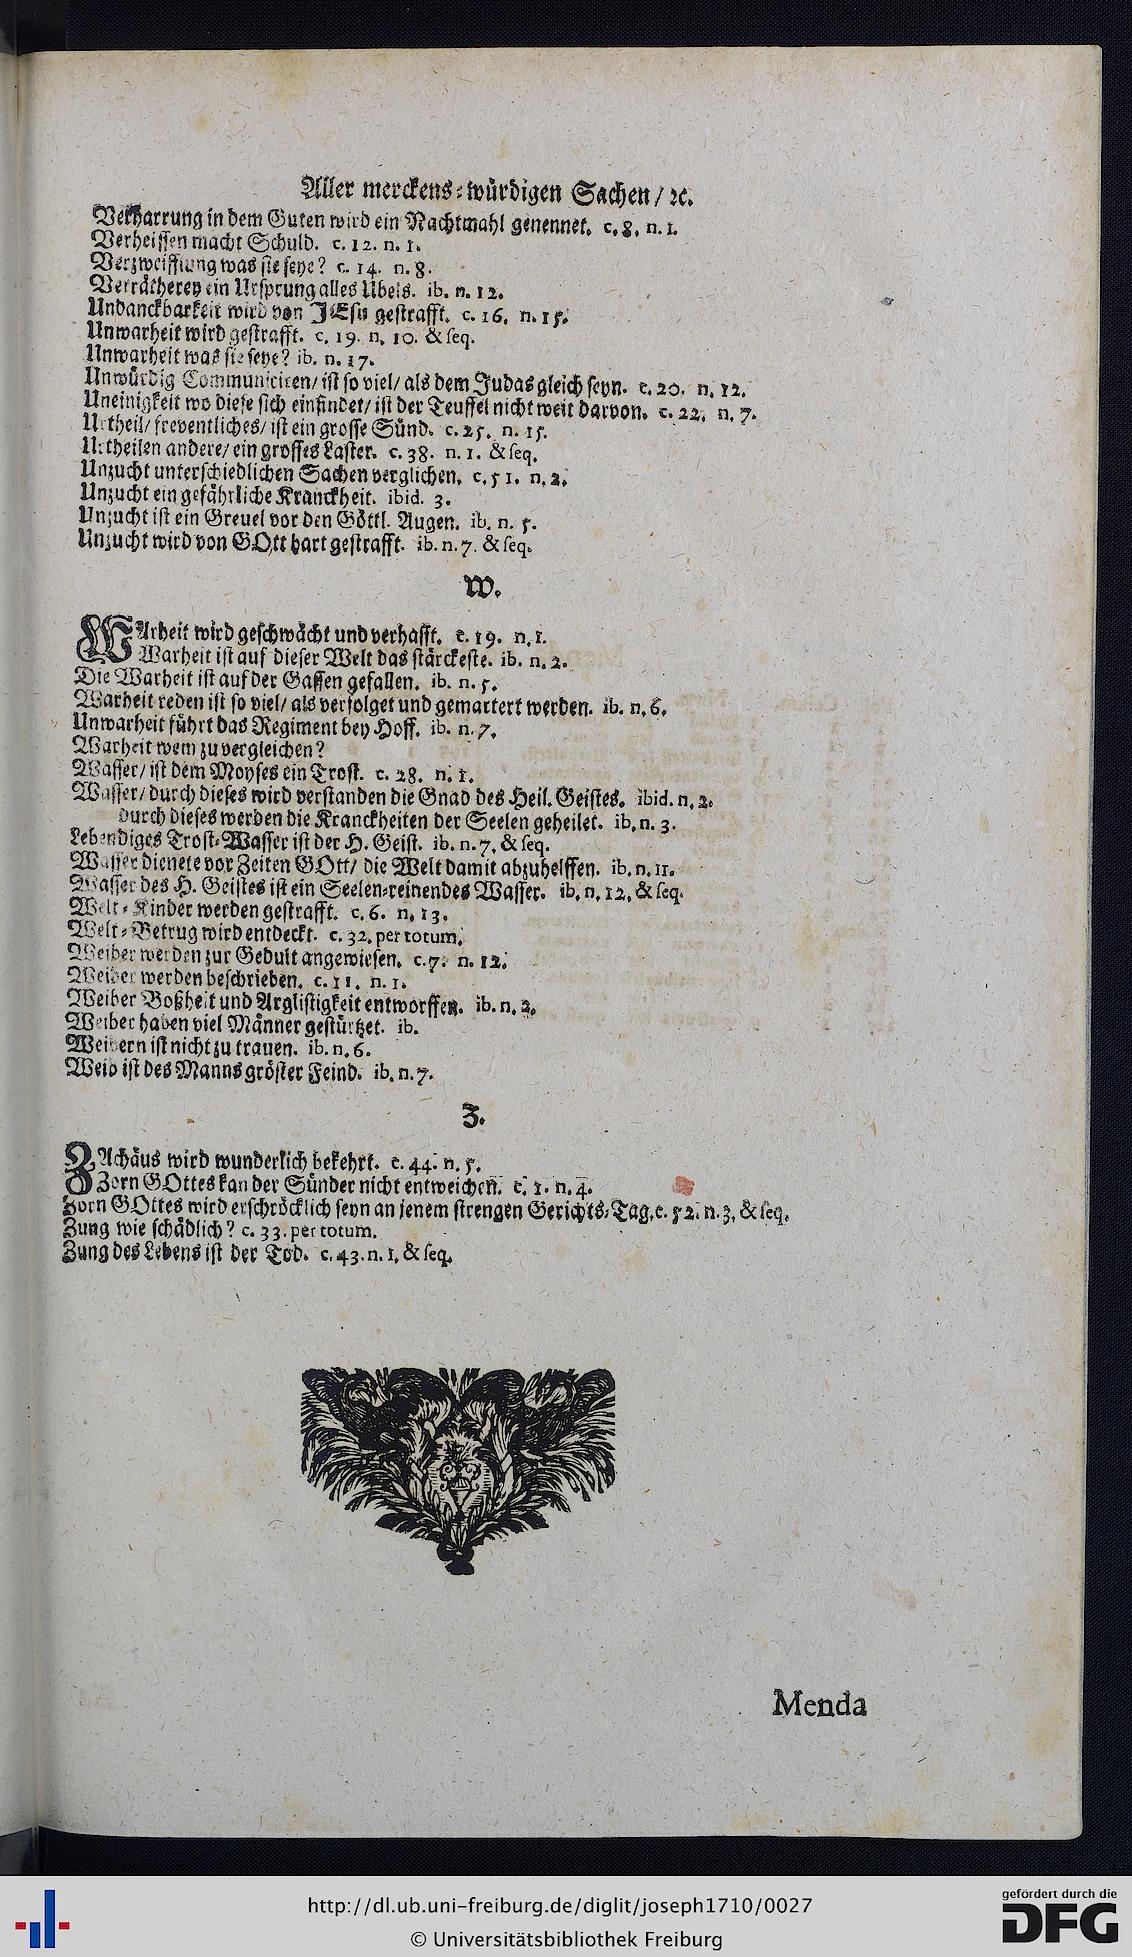 Aller merckens-würdigen Sachen/ ꝛc.
Verharrung in dem Guten wird ein Nachtmahl genennet. c. 8. n. 1.
Verheissen macht Schuld. c. 12. n. 1.
Verzweifflung was sie seye? c. 14. n. 8.
Verrätherey ein Ursprung alles Ubels. ib. n. 12.
Undanckbarkeit wird von JEsu gestrafft. c. 16. n. 15.
Unwarheit wird gestrafft. c. 19. n. 10. & seq.
Unwarheit was sie seye? ib. n. 17.
Unwürdig Communiciren/ ist so viel/ als dem Judas gleich seyn. c. 20. n. 12.
Uneinigkeit wo diese sich einfindet/ ist der Teuffel nicht weit darvon. c. 22. n. 7.
Urtheil/ freventliches/ ist ein grosse Sünd. c. 25. n. 15.
Urtheilen andere/ ein grosses Laster. c. 38. n. 1. & seq.
Unzucht unterschiedlichen Sachen verglichen. c. 51. n. 2.
Unzucht ein gefährliche Kranckheit. ibid. 3.
Unzucht ist ein Greuel vor den Göttl. Augen. ib. n. 5.
Unzucht wird von GOtt hart gestrafft. ib. n. 7. & seq.
W.
WArheit wird geschwächt und verhasst. c. 19. n. 1.
Warheit ist auf dieser Welt das stärckeste. ib. n. 2.
Die Warheit ist auf der Gassen gefallen. ib. n. 5.
Warheit reden ist so viel/ als verfolget und gemartert werden. ib. n. 6.
Unwarheit führt das Regiment bey Hoff. ib. n. 7.
Warheit wem zu vergleichen?
Wasser/ ist dem Moyses ein Trost. c. 28. n. 1.
Wasser/ durch dieses wird verstanden die Gnad des Heil. Geistes. ibid. n. 2.
durch dieses werden die Kranckheiten der Seelen geheilet. ib. n. 3.
Lebendiges Trost-Wasser ist der H. Geist. ib. n. 7. & seq.
Wasser dienete vor Zeiten GOtt/ die Welt damit abzuhelffen. ib. n. 11.
Wasser des H. Geistes ist ein Seelen-reinendes Wasser. ib. n. 12. & seq.
Welt-Kinder werden gestrafft. c. 6. n. 13.
Welt-Betrug wird entdeckt. c. 32. per totum.
Weiber werden zur Gedult angewiesen. c. 7. n. 12.
Weiber werden beschrieben. c. 11. n. 1.
Weiber Boßheit und Arglistigkeit entworffen. ib. n. 2.
Weiber haben viel Männer gestürtzet. ib.
Weibern ist nicht zu trauen. ib. n. 6.
Weib ist des Manns gröster Feind. ib. n. 7.
Z.
ZAchäus wird wunderlich bekehrt. c. 44. n. 5.
Zorn GOttes kan der Sünder nicht entweichen. c. 1. n. 4.
Zorn GOttes wird erschröcklich seyn an jenem strengen Gerichts-Tag. c. 52. n. 3. & seq.
Zung wie schädlich? c. 33. per totum.
Zung des Lebens ist der Tod. c. 43. n. 1. & seq.
Menda
http://dl.ub.uni-freiburg.de/diglit/joseph1710/0027
© Universitätsbibliothek Freiburg
gefördert durch die
DFG